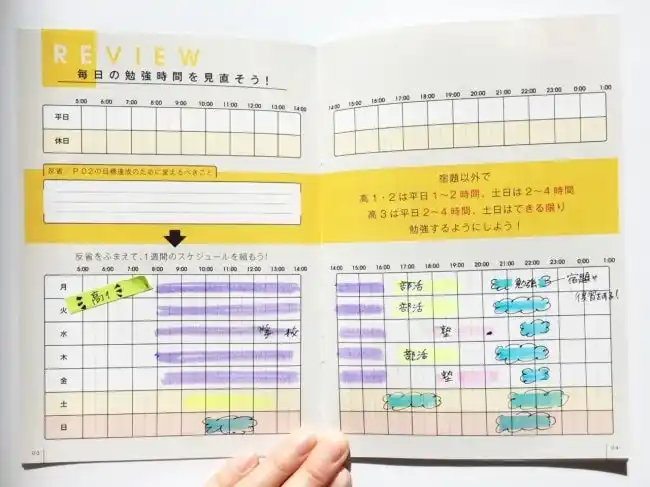 REVIEW
毎日の勉強時間を見直そう！
5:00 6:00 7:00 8:00 9:00 10:00 11:00 12:00 13:00 14:00
平日
休日
反省：P02の目標達成のために変えるべきこと
反省をふまえて、1週間のスケジュールを組もう！
5:00 6:00 7:00 8:00 9:00 10:00 11:00 12:00 13:00 14:00
月
高1
火
水 学校
木
金
土
日
03
14:00 15:00 16:00 17:00 18:00 19:00 20:00 21:00 22:00 23:00 0:00 1:00
宿題以外で
高1・2は平日1〜2時間、土日は2〜4時間
高3は平日2〜4時間、土日はできる限り
勉強するようにしよう！
14:00 15:00 16:00 17:00 18:00 19:00 20:00 21:00 22:00 23:00 0:00 1:00
部活 勉強 宿題や
部活 復習をする！
塾
部活
塾
04